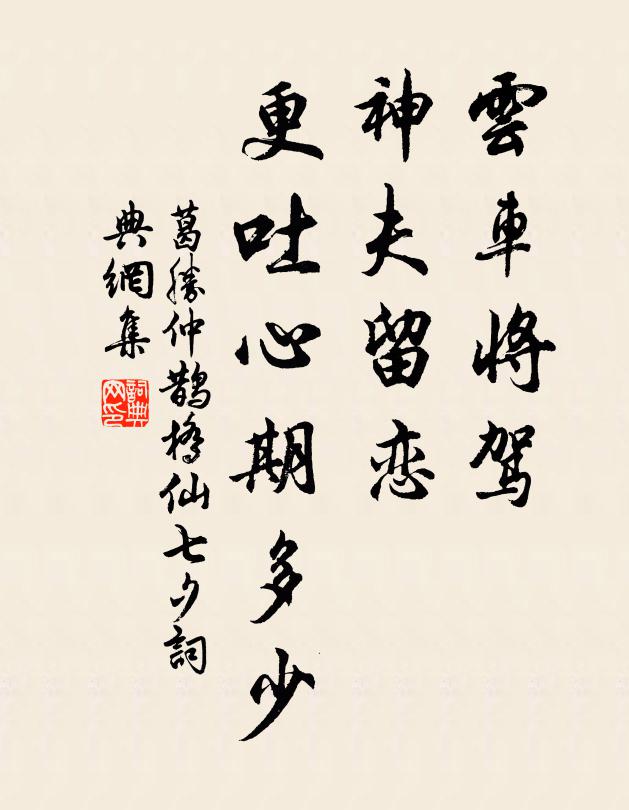 雲車将駕
神夫留恋
更吐心期多少
葛勝仲鵲橋仙七夕詞
典網集
詞典
网印